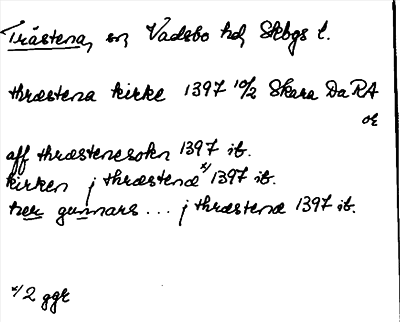 Trästena, sn, Vadsbo hd, Skbgs l.
thræstena kirke 1397 10/2 Skara DaRA
or
aff thræstenesokn 1397 ib.
kirken j thræstenæ x/ 1397 ib.
her gunnars ... j thræstenæ 1397 ib.
x/ 2 ggr